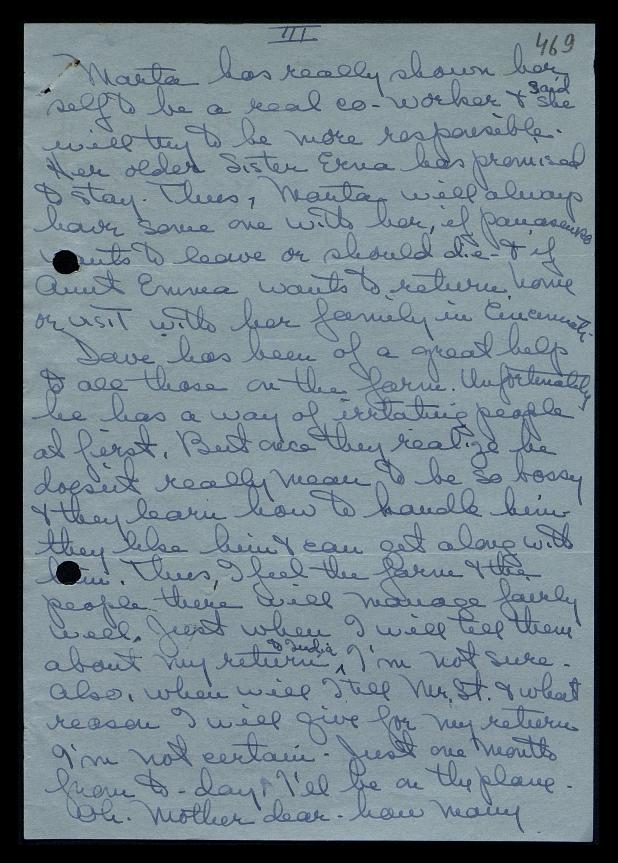 III
469
Marta has really shown her
self to be a real co-worker & said she
will try to be more responsible.
Her older Sister Erna has promised
to stay. Thus, Marta will always
have some one with her, if
wants to leave or should die - & if
Aunt Emma wants to return home
or visit with her family in Cincinnati.
Dave has been of a great help
to all those on the farm. Unfortunately
he has a way of irritating people
at first. But once they realize he
doesn't really mean to be so bossy
& they learn how to handle him
they like him & can get along with
him. Thus, I feel the farm & the
people there will manage fairly
well. Just when I will tell them
about my return to India, I'm not sure.
Also, when will I tell Mr. St. & what
reason I will give for my return
I'm not certain. Just one month
from to-day, I'll be on the plane.
Oh. Mother dear - how many